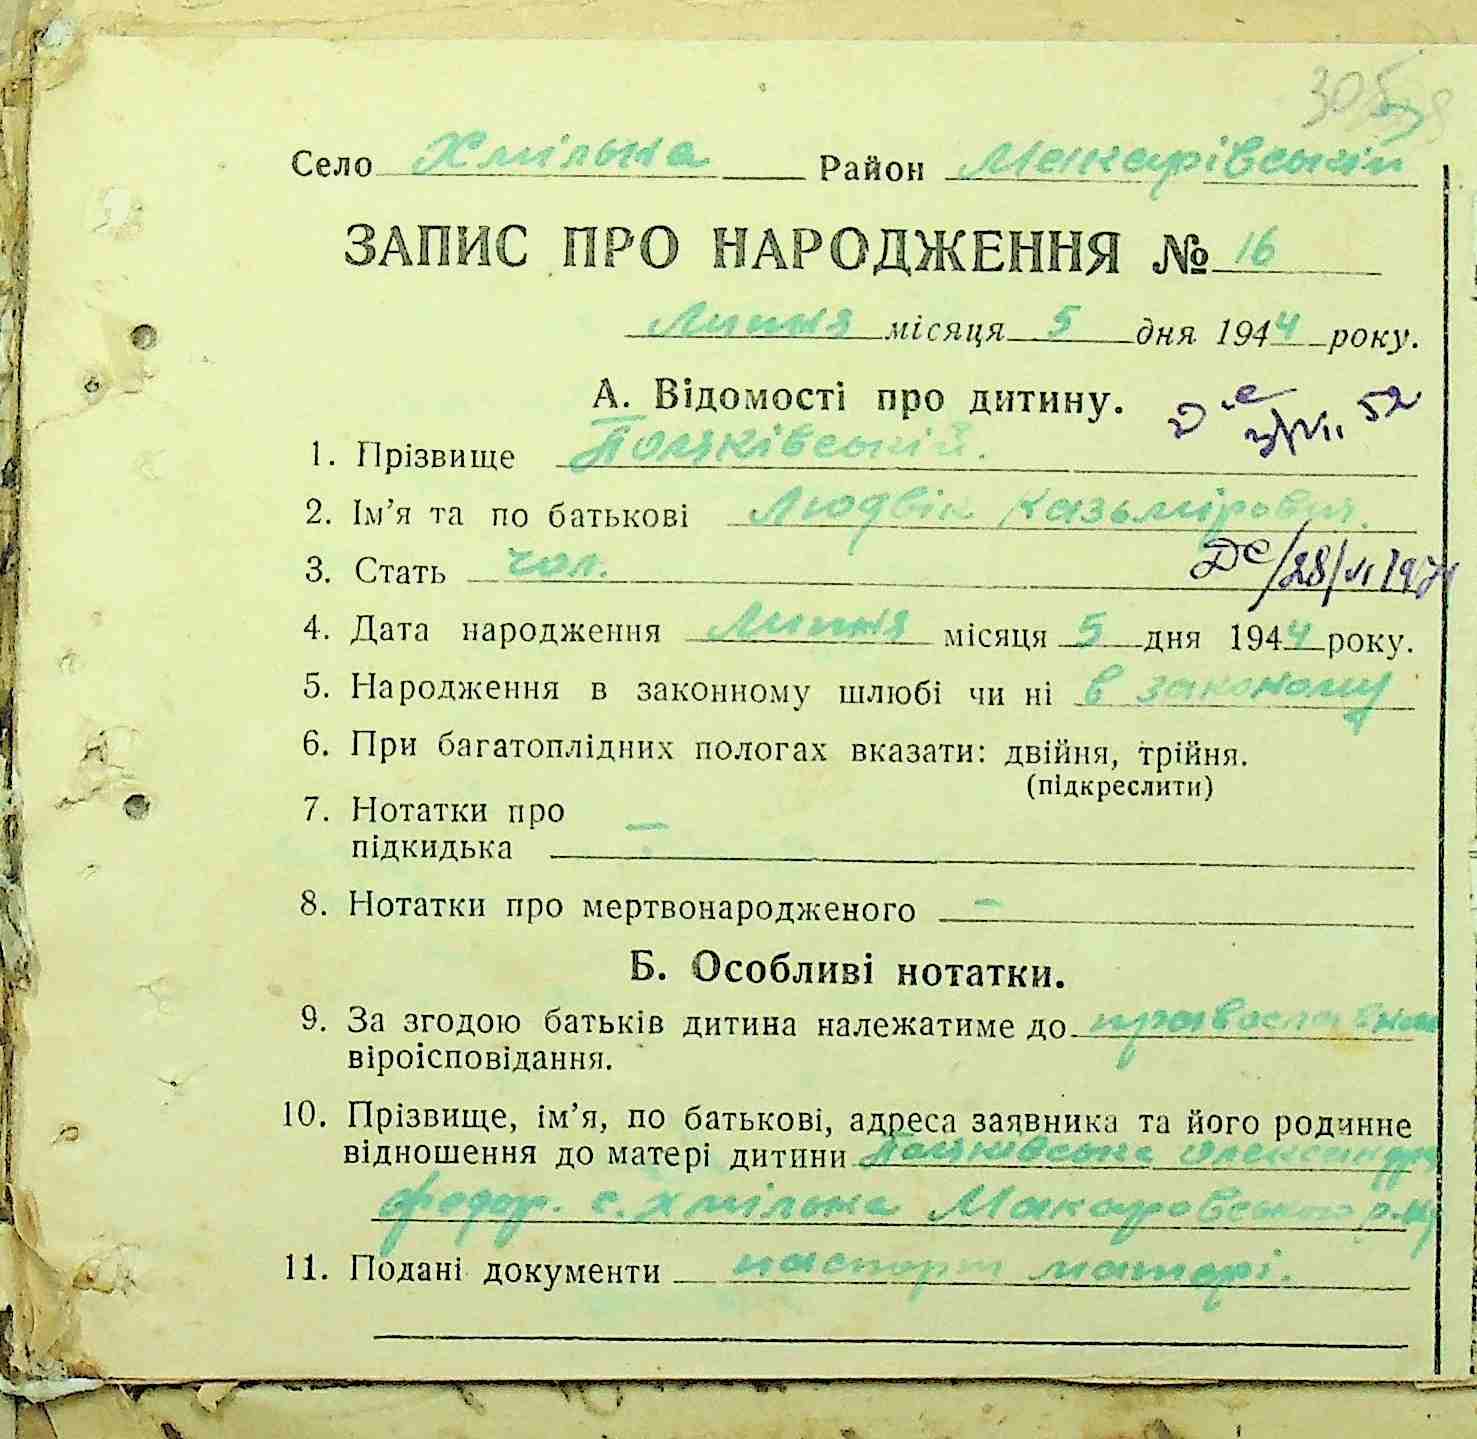 Село Хмільна Район Макарівський
ЗАПИС ПРО НАРОДЖЕННЯ № 16
Липня місяця 5 дня 1944 року.
А. Відомості про дитину.
1. Прізвище Поляківський.
2. Ім’я та по батькові Людвік Казьмірович.
3. Стать чол.
4. Дата народження Липня місяця 5 дня 1944 року.
5. Народження в законному шлюбі чи ні в законому
6. При багатоплідних пологах вказати: двійня, трійня.
(підкреслити)
7. Нотатки про
підкидька –
8. Нотатки про мертвонародженого –
Б. Особливі нотатки.
9. За згодою батьків дитина належатиме до православном
віроісповідання.
10. Прізвище, ім’я, по батькові, адреса заявника та його родинне
відношення до матері дитини Поляківська Олександра
федор. с. Хмільна Макаровського р-ну
11. Подані документи паспорт матері.